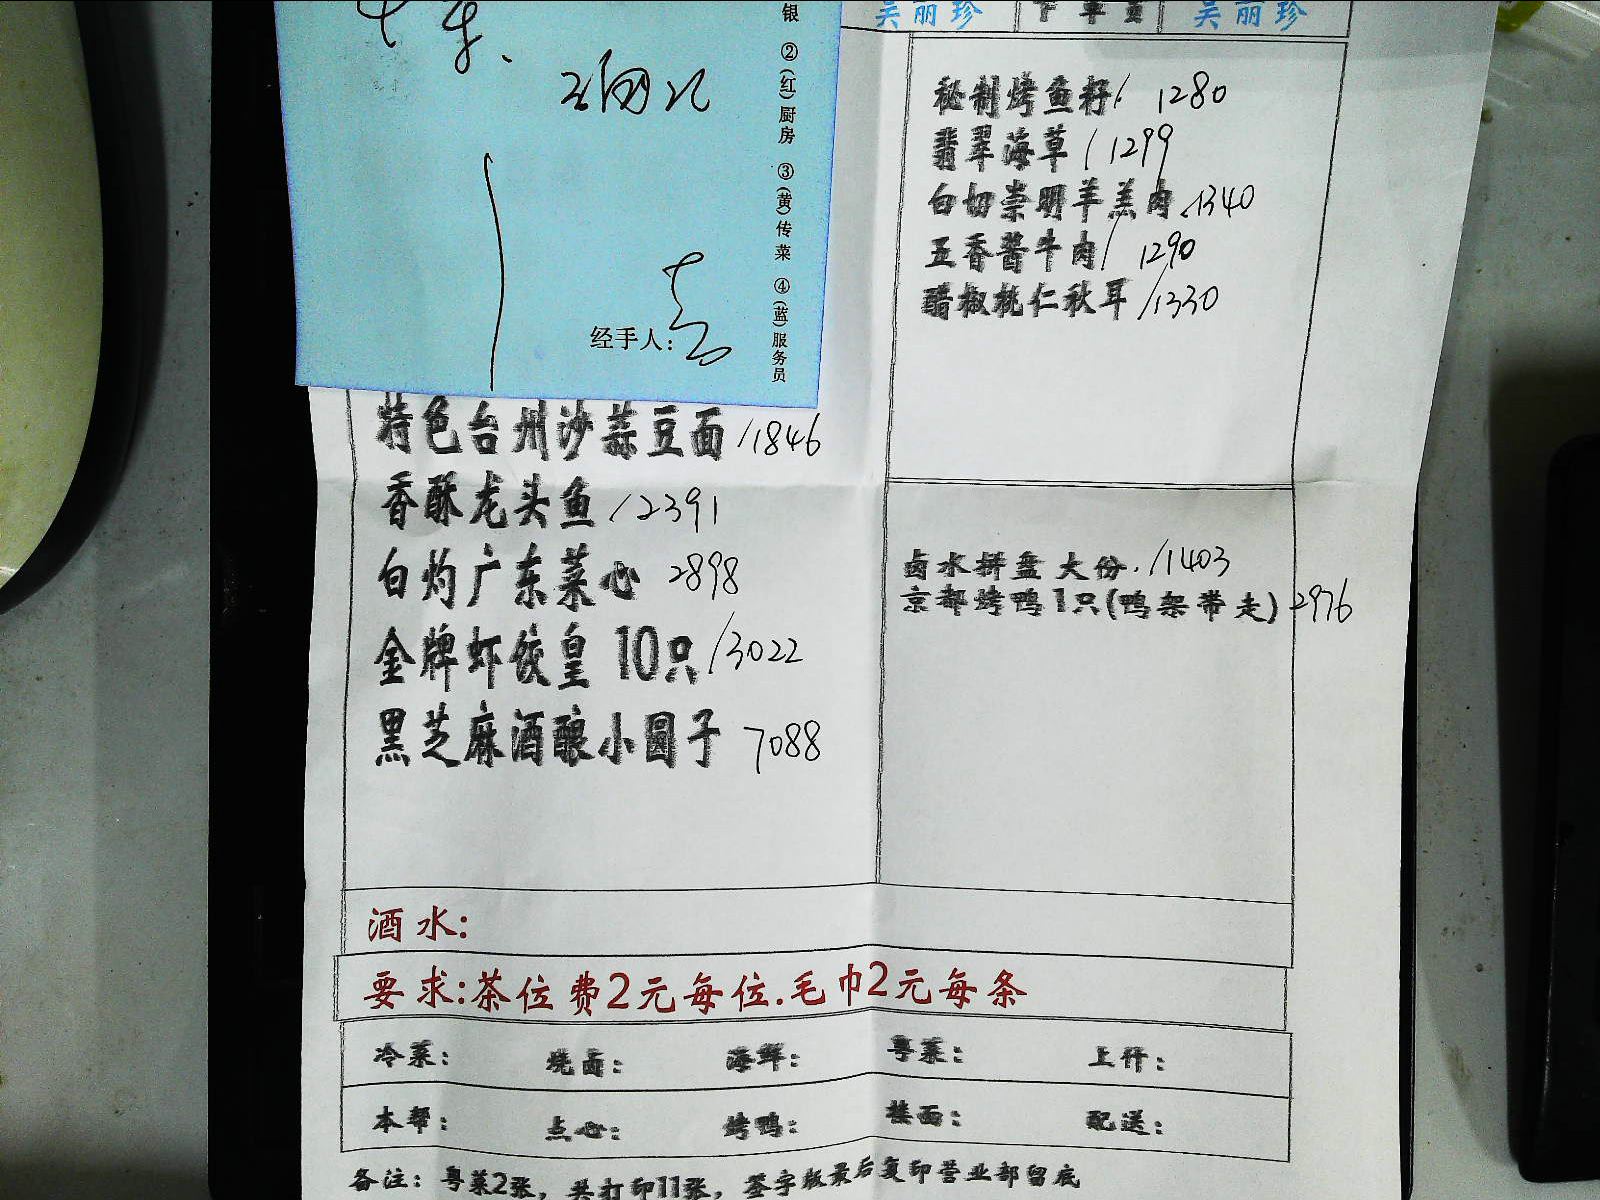 吴丽珍 下单员 吴丽珍
银 ②(红)厨房 ③(黄)传菜 ④(蓝)服务员
经手人:
秘制烤鱼籽/ 1280
翡翠海草/1299
白切崇明羊羔肉 1340
五香酱牛肉/ 1290
醋椒桃仁秋耳/1330
特色台州沙蒜豆面/1846
香酥龙头鱼/2391
白灼广东菜心 2898
金牌虾饺皇 10只/3022
黑芝麻酒酿小圆子 7088
卤水拼盘大份./1403
京都烤鸭1只(鸭架带走) 2976
酒水:
要求:茶位费2元每位.毛巾2元每条
冷菜: 烧卤: 海鲜: 粤菜: 上什:
本帮: 点心: 烤鸭: 楼面: 配送:
备注: 粤菜2张, 共打印11张, 签字版最后复印营业部留底